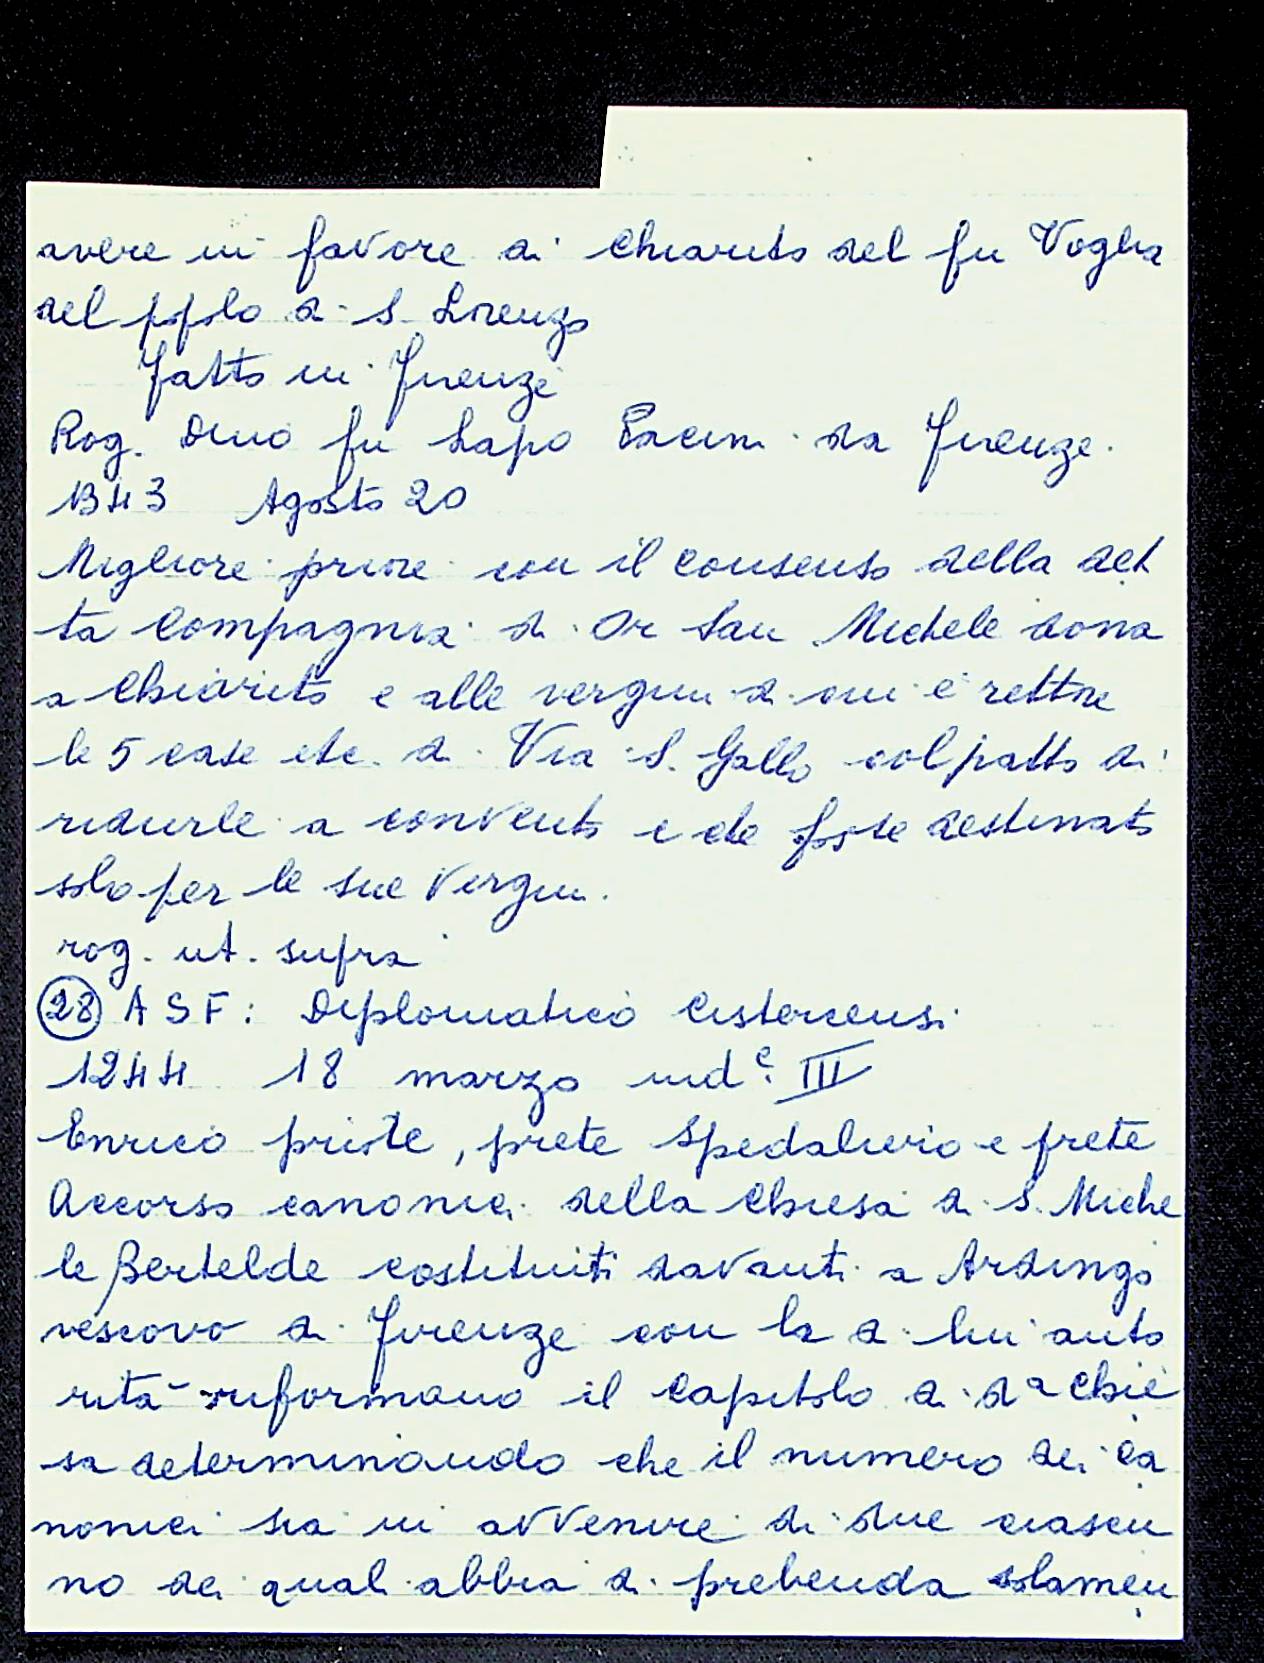 avere in favore di Chiarito del fu Voglia
del popolo di S. Lorenzo
Fatto in Firenze
Rog. Dino fu Lapo Pacini da Firenze.
1343 Agosto 20
Migliore priore con il consenso della det
ta Compagnia di Or San Michele dona
a Chiarito e alle vergini di cui è rettore
le 5 case etc. di Via S. Gallo col patto di
ridurle a convento e che fosse destinato
solo per le sue vergini.
rog. ut. supra
(28) A S F: Diplomatico Cistercensi
1244 18 marzo ind.e III
Enrico priore, prete Spedalerio e prete
Accorso canonici della Chiesa di S. Miche
le Bertelde costituiti davanti a Ardingo
vescovo di Firenze con la di lui auto
rità riformano il Capitolo di da Chie
sa determinando che il numero dei ca
nonici sia in avvenire di due ciascu
no dei quali abbia di prebenda solamen